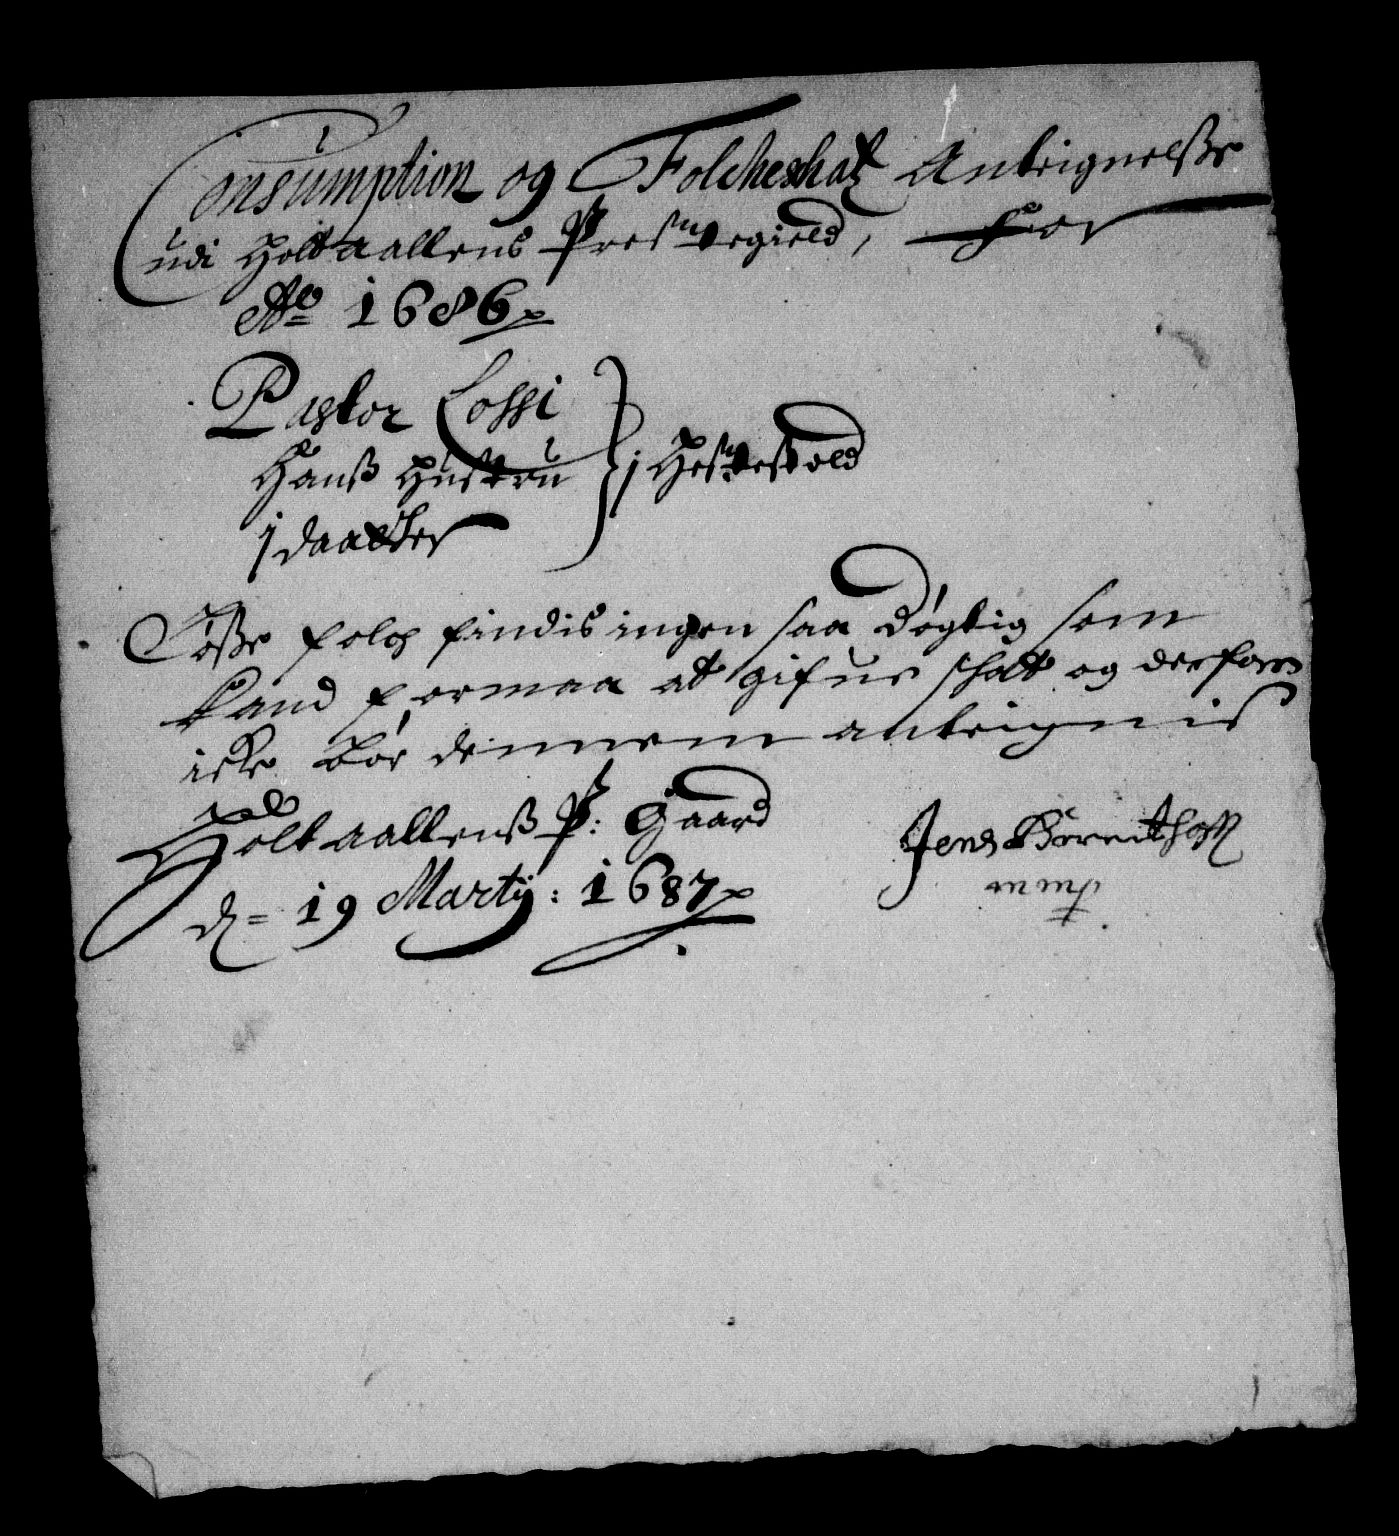 Consumption og Folcheskat Anteignelsße
udi Holtaallens Prestegield, For
Ao 1686
Pastor Loci
Hanß Hustru
1 daatter
1 Hestehold
Løße folch findis ingen saa døgtig som
kand formaa at gifue schatt og derforre
icke bør dennem anteignis
Holtaallenß P: Gaard
d= 19 Marty: 1687
Jens
mmp